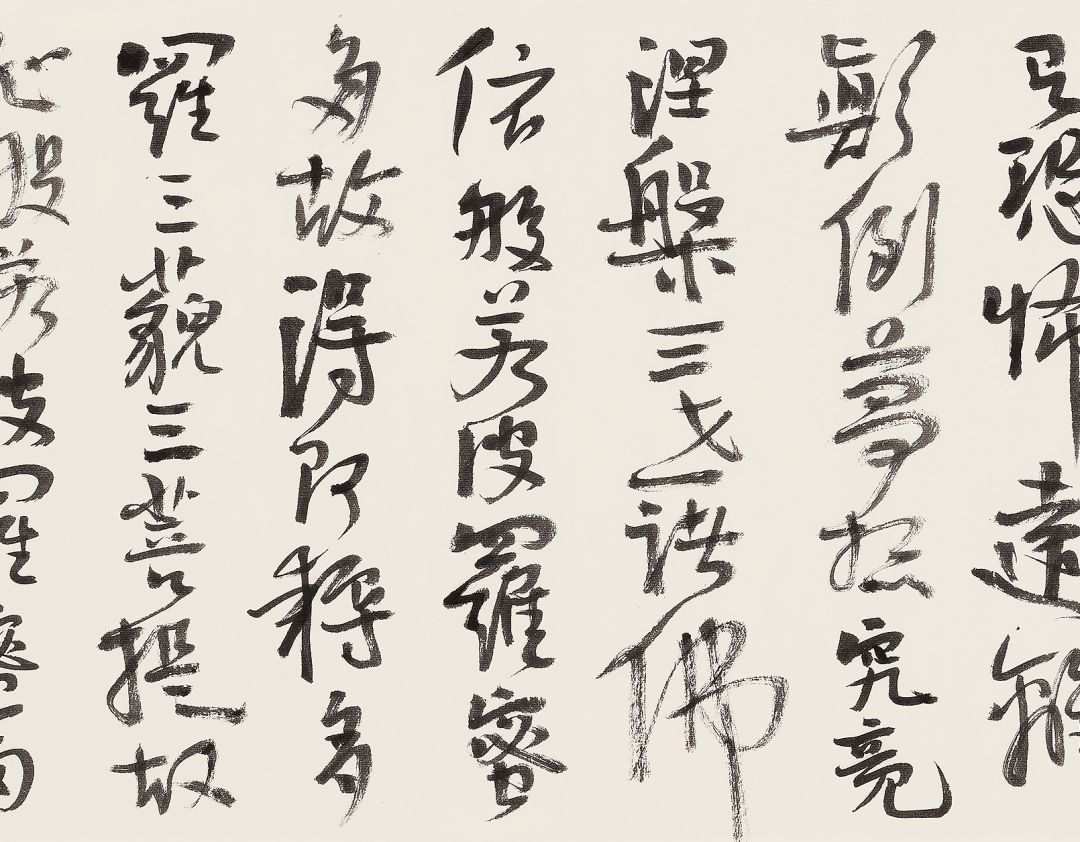 有恐怖遠離
顛倒夢想究竟
涅槃三世諸佛
依般若波羅蜜
多故得阿耨多
羅三藐三菩提故
般若波羅蜜